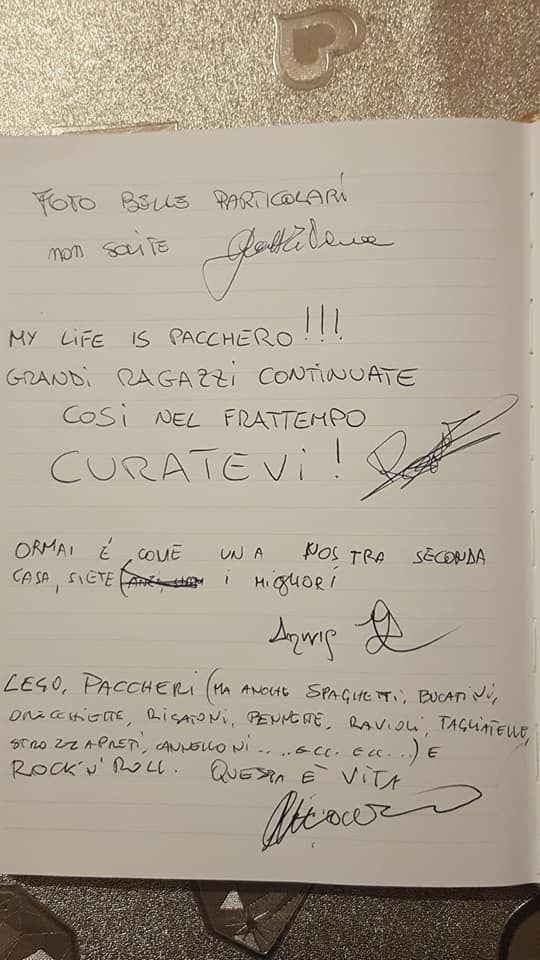 FOTO BELLE PARTICOLARI
NON SOLITE
MY LIFE IS PACCHERO!!!
GRANDI RAGAZZI CONTINUATE
COSI NEL FRATTEMPO
CURATEVI!
ORMAI É COME UNA NOSTRA SECONDA
CASA, SIETE I MIGLIORI
LEGO, PACCHERI (MA ANCHE SPAGHETTI, BUCATINI,
ORECCHIETTE, RIGATONI, PENNETTE, RAVIOLI, TAGLIATELLE,
STROZZAPRETI, CANNELLONI.. ..ECC. ECC..) E
ROCK'N'ROLL. QUESTA È VITA